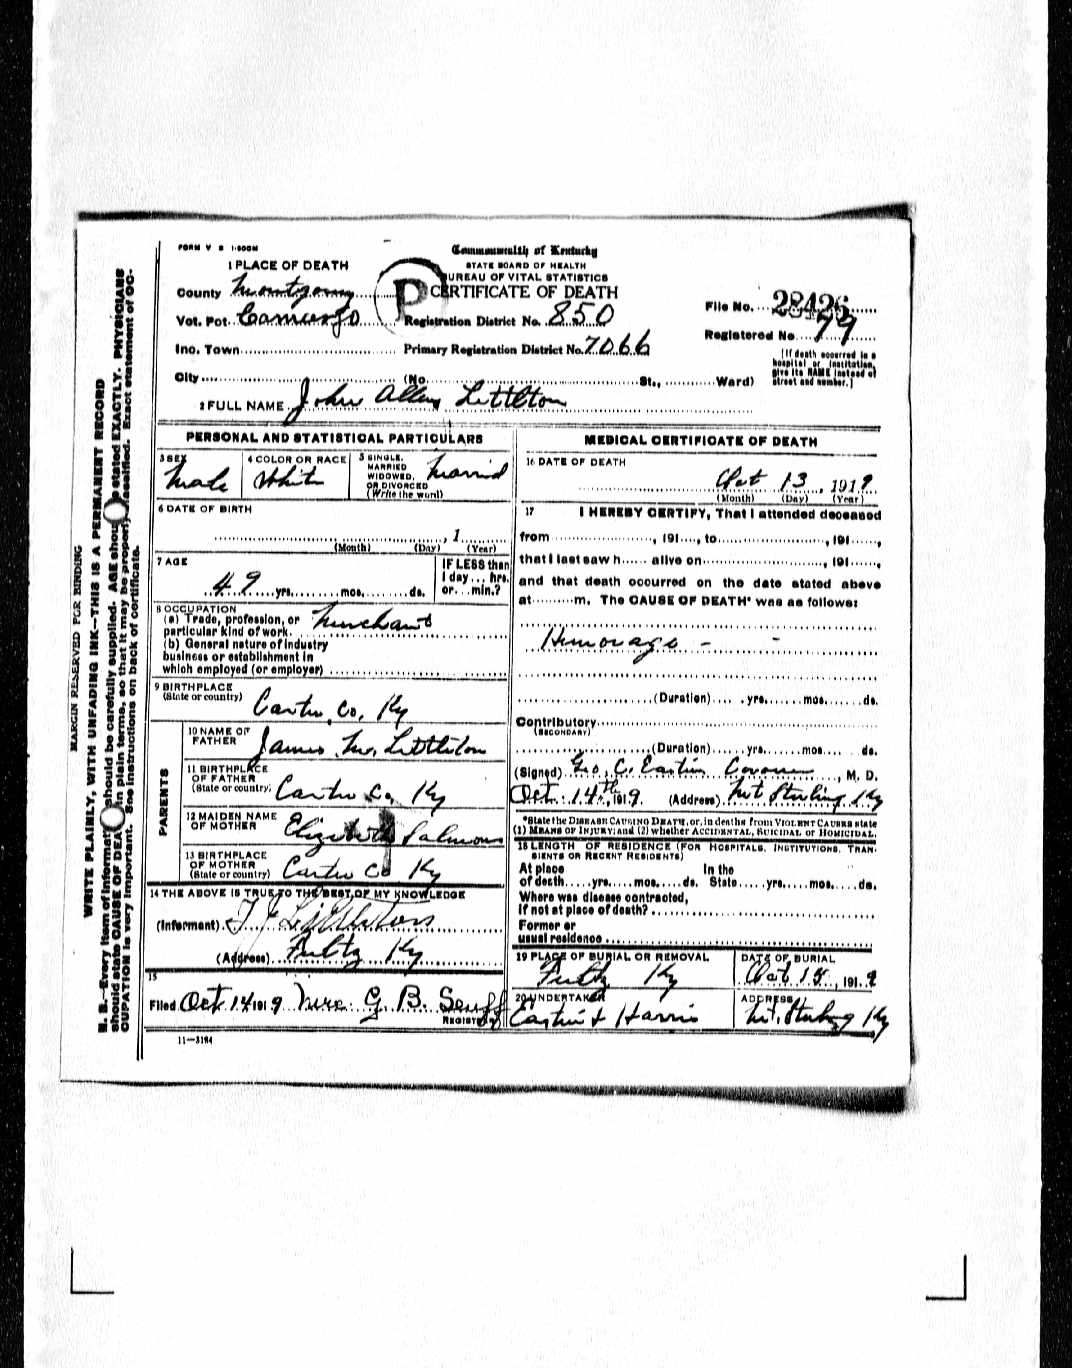 FORM V S 1-500M
Commonwealth of Kentucky
STATE BOARD OF HEALTH
BUREAU OF VITAL STATISTICS
CERTIFICATE OF DEATH
1 PLACE OF DEATH
County Montgomy
Vot. Pct. Camargo
Registration District No. 850
File No. 28426
Registered No. 79
Inc. Town
Primary Registration District No. 7066
City (No. St., Ward)
[If death occurred in a hospital or institution, give its NAME instead of street and number.]
2 FULL NAME John Allen Littleton
PERSONAL AND STATISTICAL PARTICULARS
3 SEX
Male
4 COLOR OR RACE
White
5 SINGLE, MARRIED WIDOWED, OR DIVORCED (Write the word)
Married
6 DATE OF BIRTH
, 1
(Month) (Day) (Year)
7 AGE
49 yrs. mos. ds.
IF LESS than 1 day... hrs. or... min.?
8 OCCUPATION
(a) Trade, profession, or particular kind of work. Merchant
(b) General nature of industry business or establishment in which employed (or employer)
9 BIRTHPLACE
(State or country) Carter Co, Ky
PARENTS
10 NAME OF FATHER James M. Littleton
11 BIRTHPLACE OF FATHER (State or country) Carter Co, Ky
12 MAIDEN NAME OF MOTHER Elizabeth Salmons
13 BIRTHPLACE OF MOTHER (State or country) Carter Co Ky
14 THE ABOVE IS TRUE TO THE BEST OF MY KNOWLEDGE
(Informant) Littleton
(Address) Fultz Ky
15
Filed Oct 14 1919 G. B. Senff
REGISTRAR
11—3184
MEDICAL CERTIFICATE OF DEATH
16 DATE OF DEATH
Oct 13, 1919
(Month) (Day) (Year)
17 I HEREBY CERTIFY, That I attended deceased
from , 191 , to , 191 ,
that I last saw h alive on , 191 ,
and that death occurred on the date stated above
at m. The CAUSE OF DEATH* was as follows:
Hemorage - -
(Duration) yrs. mos. ds.
Contributory
(SECONDARY)
(Duration) yrs. mos. ds.
(Signed) Geo. C. Eastin Coroner, M. D.
Oct. 14th, 1919. (Address) Mt Sterling Ky
*State the DISEASE CAUSING DEATH, or, in deaths from VIOLENT CAUSES state
(1) MEANS OF INJURY; and (2) whether ACCIDENTAL, SUICIDAL or HOMICIDAL.
18 LENGTH OF RESIDENCE (FOR HOSPITALS, INSTITUTIONS, TRANSIENTS OR RECENT RESIDENTS)
At place of death yrs. mos. ds. In the State yrs. mos. ds.
Where was disease contracted,
if not at place of death?
Former or
usual residence
19 PLACE OF BURIAL OR REMOVAL
Fultz Ky
DATE OF BURIAL
Oct 15, 1919
20 UNDERTAKER
Eastin & Harris
ADDRESS
Mt. Sterling Ky
MARGIN RESERVED FOR BINDING
WRITE PLAINLY, WITH UNFADING INK—THIS IS A PERMANENT RECORD
N. B.—Every item of information should be carefully supplied. AGE should be stated EXACTLY. PHYSICIANS
should state CAUSE OF DEATH in plain terms, so that it may be properly classified. Exact statement of OC-
CUPATION is very important. See instructions on back of certificate.